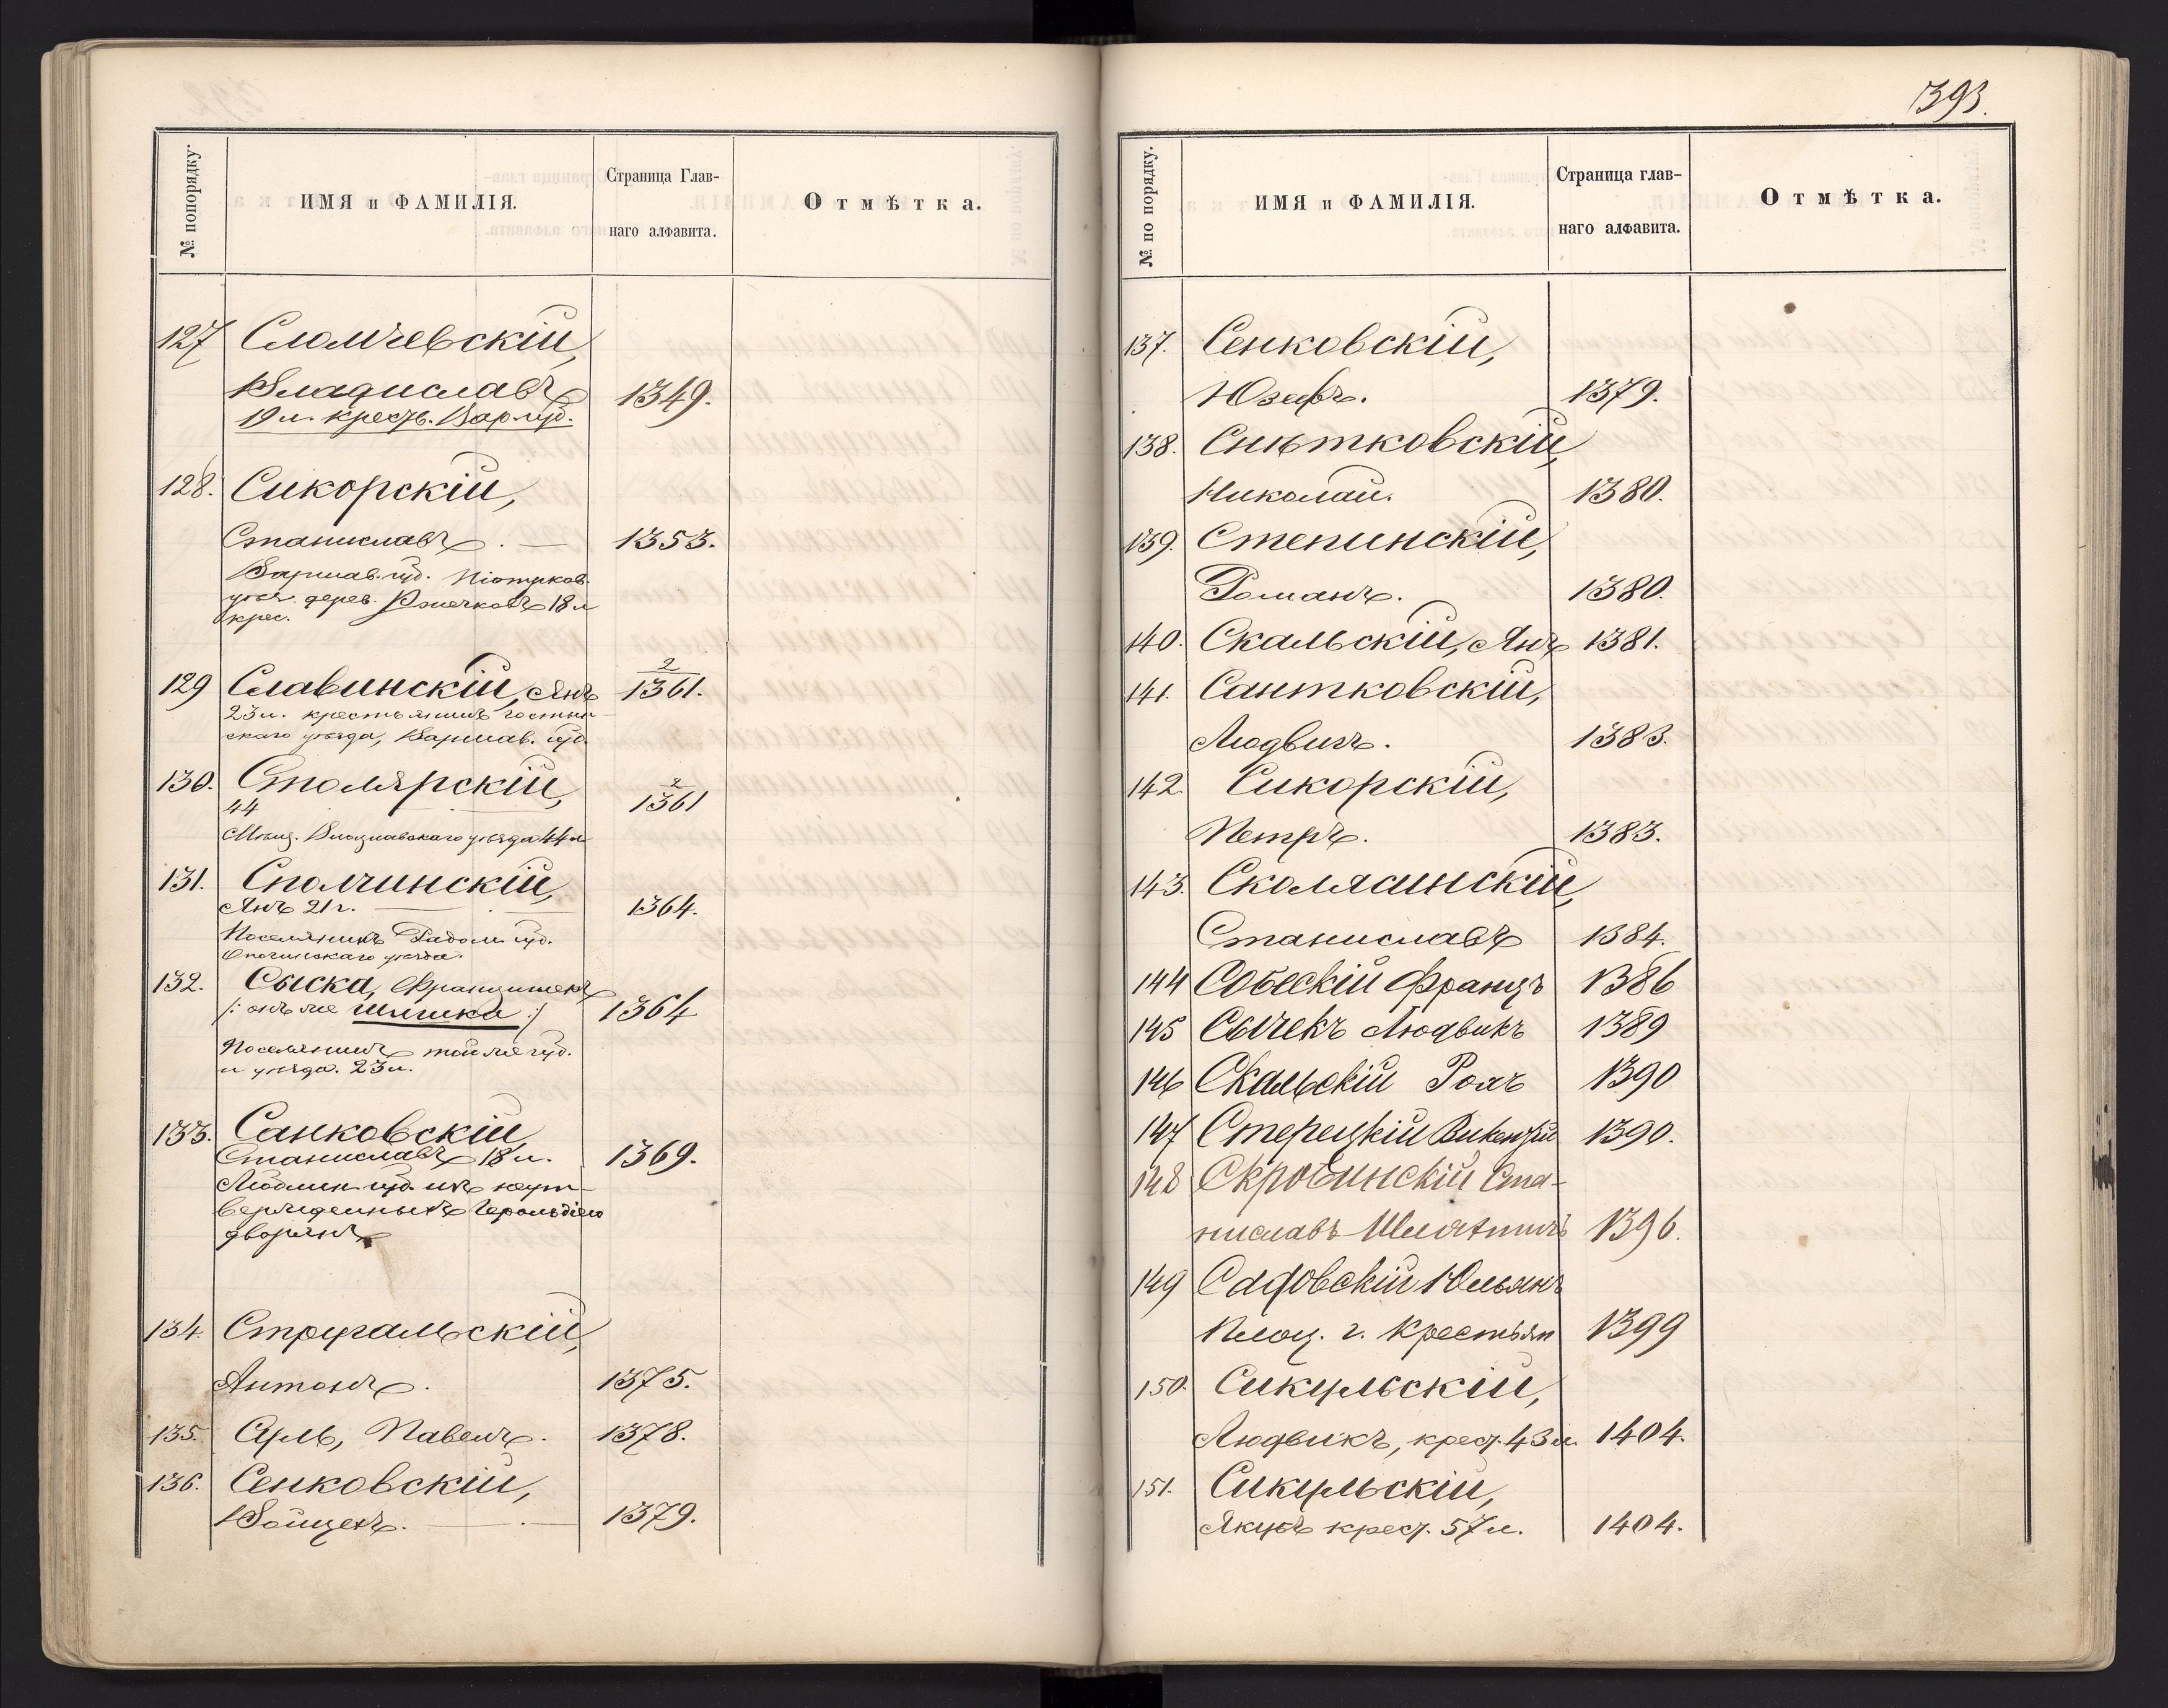 № попорядку.
ИМЯ и ФАМИЛІЯ.
Страница Глав-
наго алфавита.
Отмѣтка.
127 Сломчевскій,
Владиславъ 1349.
19 л. крест. Вар. губ.
128. Сикорскій,
Станиславъ. — 1353.
Варшав. губ. Піотрков.
уѣз. дерев. 18 л
крес.
129 Славинскій, Янъ 2/1361.
23 л. крестьянинъ гостын-
скаго уѣзда, Варшав. губ.
130. Столярскій, 2/1361
44
Мѣщ. Влоцлавскаго уѣзда 44 л
131. Сполчинскій,
Янъ 21 г. — 1364.
Поселянинъ Радом. губ.
Опочинскаго уѣзда.
132. Сыска, Францишекъ
/: онъ же Шишка :/ 1364
Поселянинъ той же губ.
и уѣзда. 23 л.
133. Санковскій,
Станиславъ 18 л. 1369.
Люблин. губ. изъ неут-
вержденныхъ Герольдіею
дворянъ
134. Стругальскій,
Антонъ. 1375.
135. Суль, Павелъ. 1378.
136. Сенковскій,
Войцехъ. — 1379.
393.
№ по порядку.
ИМЯ и ФАМИЛІЯ.
Страница глав-
наго алфавита.
Отмѣтка.
137. Сенковскій,
Юзефъ. 1379.
138. Снѣтковскій,
Николай. 1380.
139. Степинскій,
Романъ. 1380.
140. Скальскій, Янъ 1381.
141. Сантковскій,
Людвигъ. 1383.
142. Сикорскій,
Петръ. 1383.
143. Сколясинскій,
Станиславъ 1384.
144 Собескій Францъ 1386
145 Сычекъ Людвикъ 1389
146 Скальскій Рохъ 1390
147 Стерецкій Викентій 1390.
148 Скробинскій Ста-
ниславъ Шляхтичъ 1396.
149 Садовскій Юльянъ
Плоц. г. Крестьян 1399
150. Сикульскій,
Людвикъ, крест. 43 л. 1404.
151. Сикульскій,
Якубъ крест. 57 л. 1404.